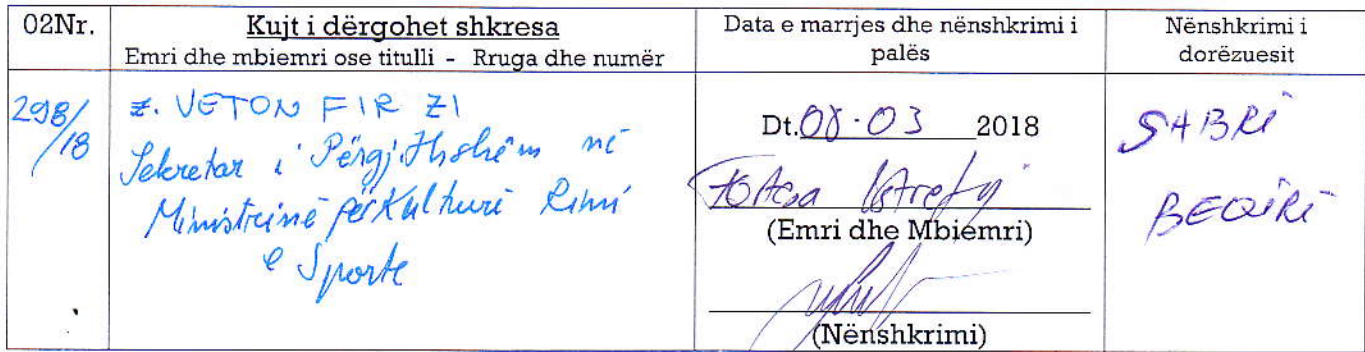 02Nr.
Kujt i dërgohet shkresa
Emri dhe mbiemri ose titulli - Rruga dhe numër
Data e marrjes dhe nënshkrimi i
palës
Nënshkrimi i
dorëzuesit
298/18
z. VETON FIRZI
Sekretar i Përgjithshëm në
Ministrinë për Kulturë Rini
e Sporte
Dt.08.03 2018
Fortesa
(Emri dhe Mbiemri)
(Nënshkrimi)
SABRI
BEQIRI